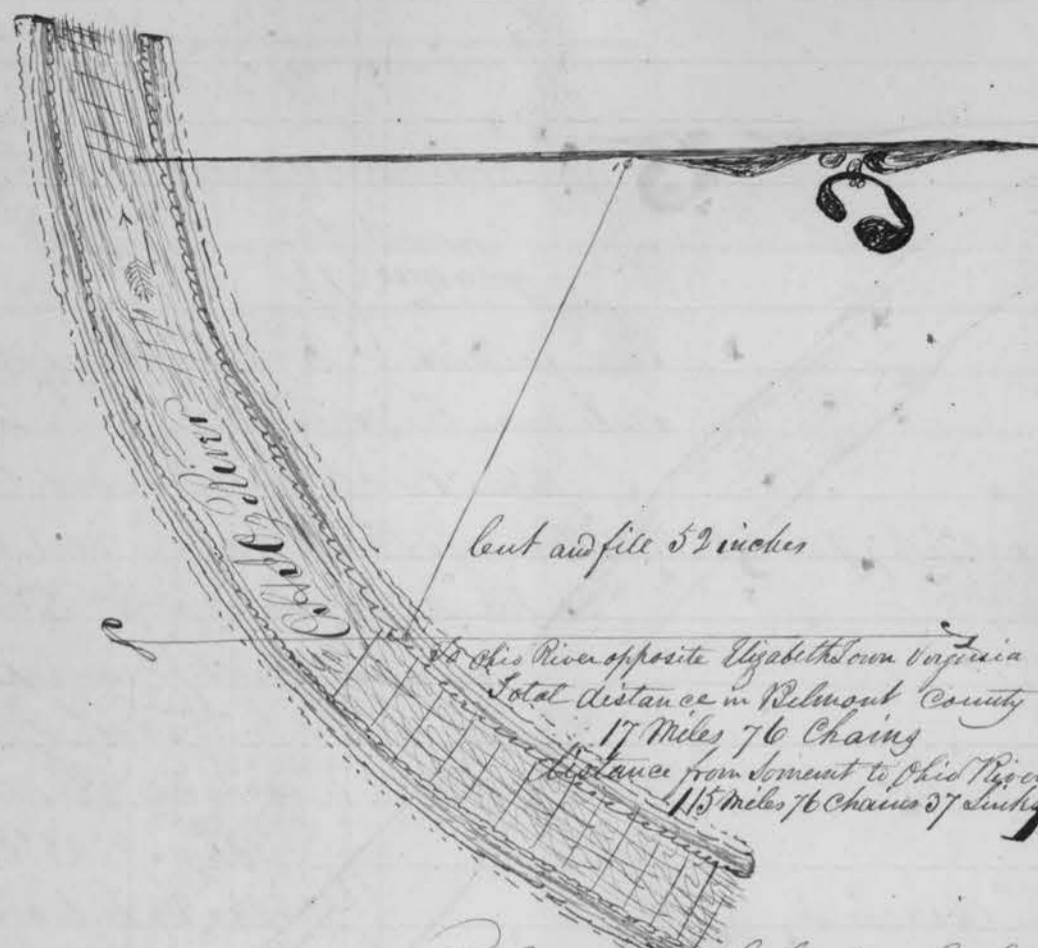 Ohio River
Cut and fill 52 inches
To Ohio River opposite Elizabeth Town Virginia
Total distance in Belmont County
17 Miles 76 Chains
Distance from Somerset to Ohio River
115 Miles 76 Chains 37 Links